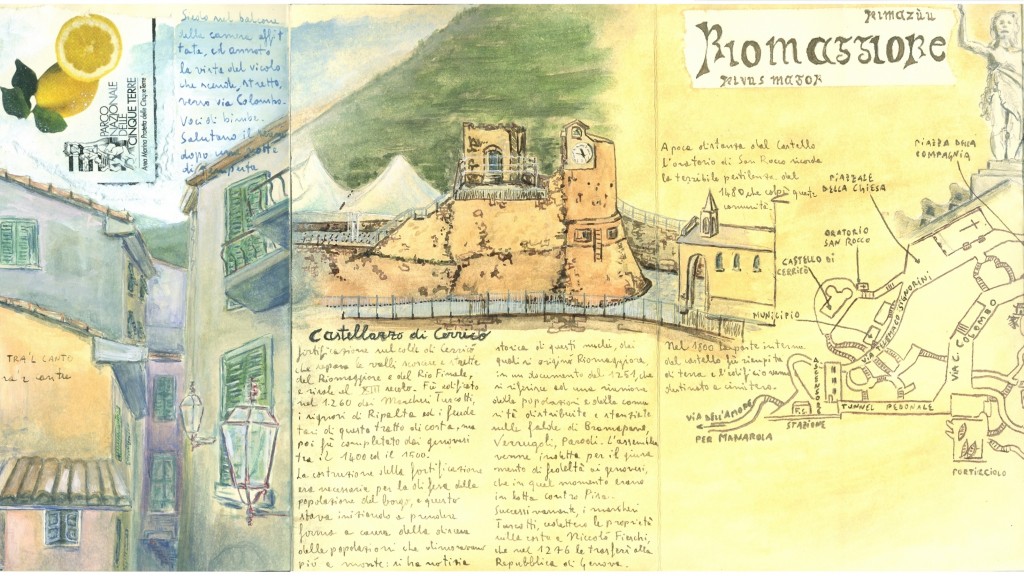 PARCO
NAZIONALE
DELLE
CINQUE TERRE
Area Marina Protetta delle Cinque Terre
Siedo nel balcone
delle camere affit
tate, ed annoto
la vista del vicolo
che scende, stretto,
verso via Colombo.
Voci di bimbe.
Salutano il
dopo una notte
di
TRA'L CANTO
Castellazzo di Cerricò
fortificazione sul colle di Cerricò
che separa le valli
del Riomaggiore e del Rio Finale,
e risale al XIII secolo. Fù edificato
nel 1260 dai Marchesi Turcotti,
i signori di Ripalta ed i feuda
tari di questo tratto di costa, ma
poi fù completato dai genovesi
tra il 1400 ed il 1500.
La costruzione della fortificazione
era necessaria per la difesa della
popolazione del borgo, e questo
stava iniziando a prendere
forma a causa della discesa
delle popolazioni che dimoravano
più a monte: si ha notizia
storica di questi nuclei, dai
quali si originò Riomaggiore,
in un documento del 1251, che
si riferisce ad una riunione
delle popolazioni e delle comu
nità distribuite e stanziate
sulle falde di
Verrugoli, Parodi. L'assemblea
venne indetta per il giura
mento di fedeltà ai genovesi,
che in quel momento erano
in lotta contro Pisa.
Successivamente, i marchesi
Turcotti, cedettero le proprietà
sulla costa a Niccolò Fieschi,
che nel 1276 le trasferì alla
Repubblica di Genova.
Rimazùu
RIOMAGGIORE
Rivus Major
A poca distanza dal Castello
L'oratorio di San Rocco ricorda
la terribile pestilenza del
1480, che colpì questa
comunità.
Nel 1800 la parte interna
del castello fù riempita
di terra e l'edificio venne
destinato a cimitero.
PIAZZA DELLA
COMPAGNIA
PIAZZALE
DELLA CHIESA
ORATORIO
SAN ROCCO
CASTELLO DI
CERRICÒ
MUNICIPIO
VIA T. SIGNORINI
VIA C. COLOMBO
ASCENSORE
TUNNEL PEDONALE
F.S.
STAZIONE
VIA DELL'AMORE
PER MANAROLA
PORTICCIOLO